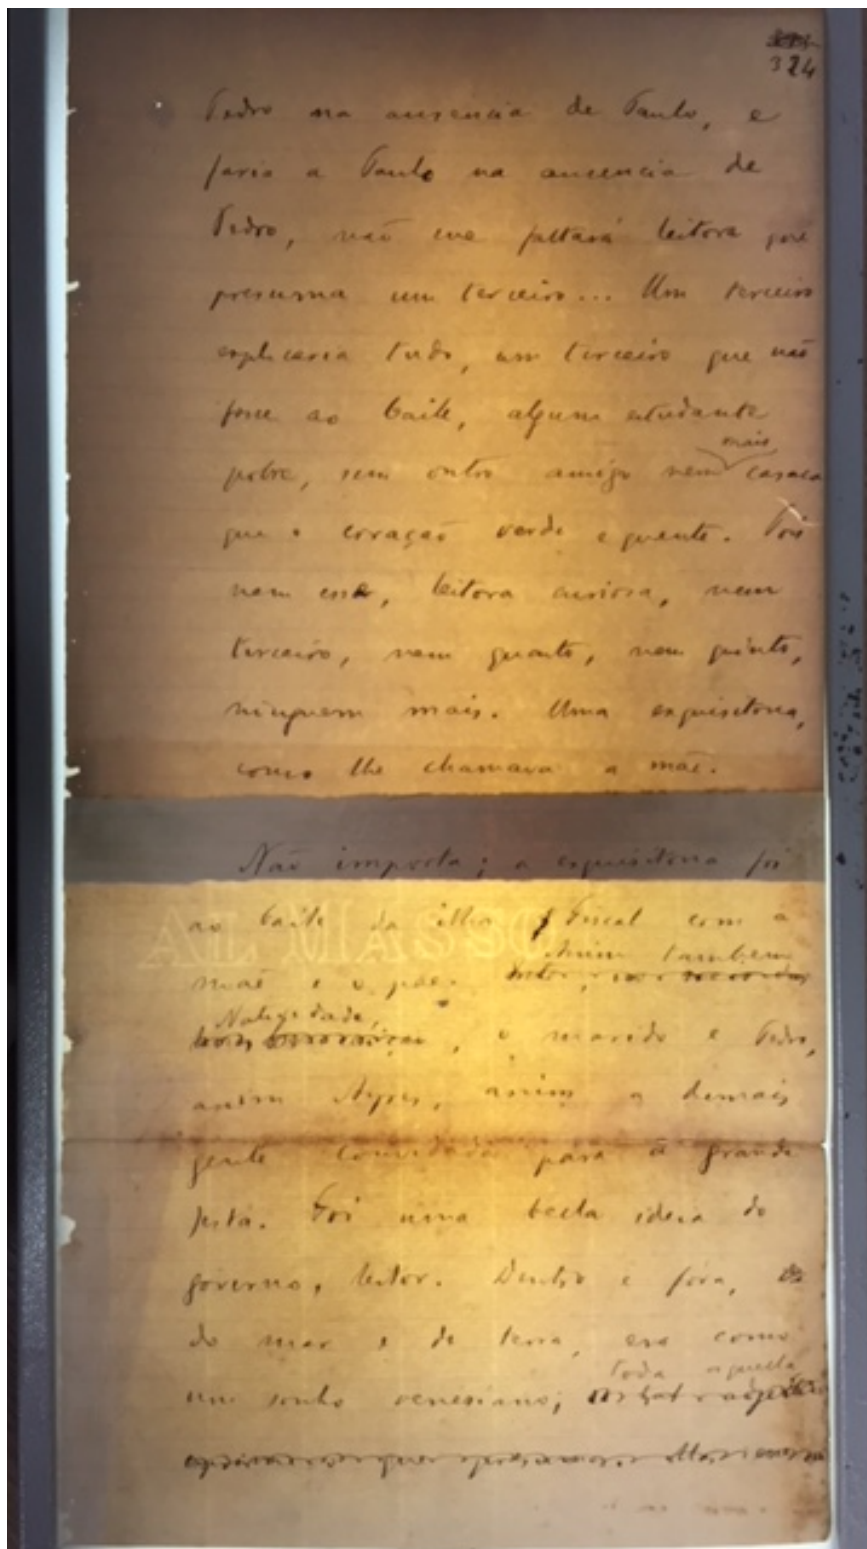 324
Pedro na ausencia de Paulo, e
faria a Paulo na ausencia de
Pedro, não me faltará leitora que
presuma um terceiro... Um terceiro
explicaria tudo, um terceiro que não
fosse ao baile, algum estudante
mais
pobre, sem outro amigo nem casaca
que o coração verde e quente. Pois
nem esse, leitora curiosa, nem
terceiro, nem quarto, nem quinto,
ninguem mais. Uma esquisitona,
como lhe chamava a mãe.
Não importa; a esquisitona foi
ao baile da ilha Fiscal com a
AL MASSO
Assim tambem
mãe e o pae.
Natividade,
o marido e Pedro,
assim Ayres, assim a demais
gente convidada para a grande
festa. Foi uma bella ideia do
governo, leitor. Dentro e fóra,
do mar e de terra, era como
toda aquella
um sonho veneziano;